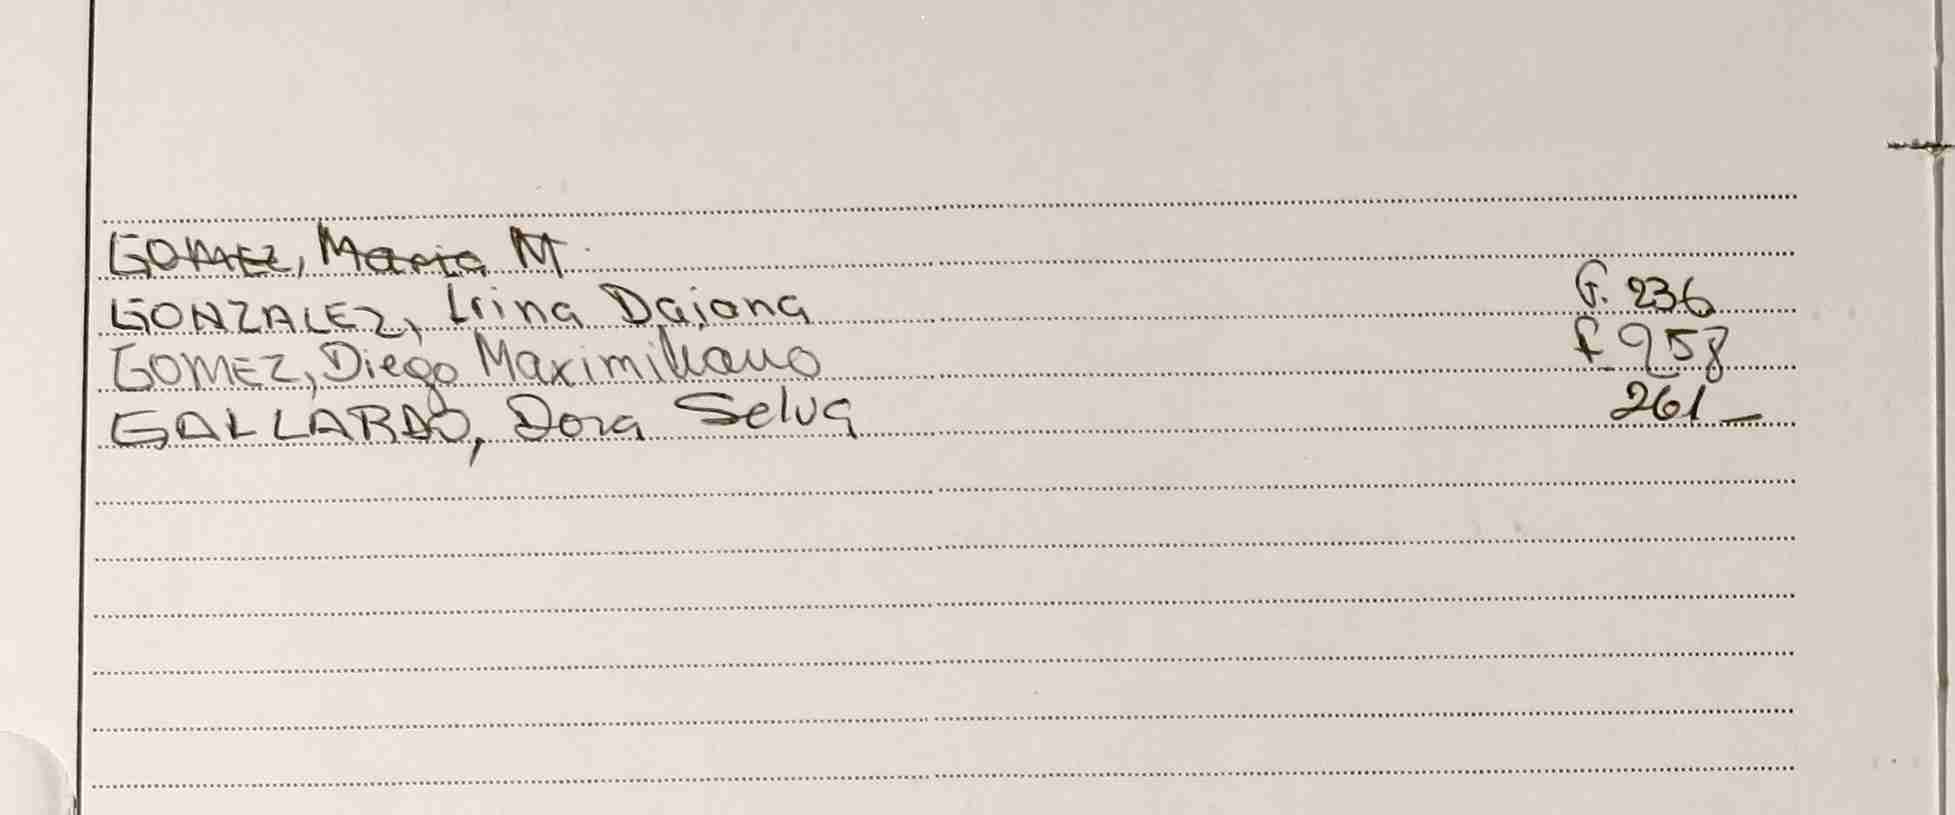 GOMEZ, Maria M.
GONZALEZ, Irina Daiana G. 236
GOMEZ, Diego Maximiliano f 258
GALLARDO, Dora Selva 261